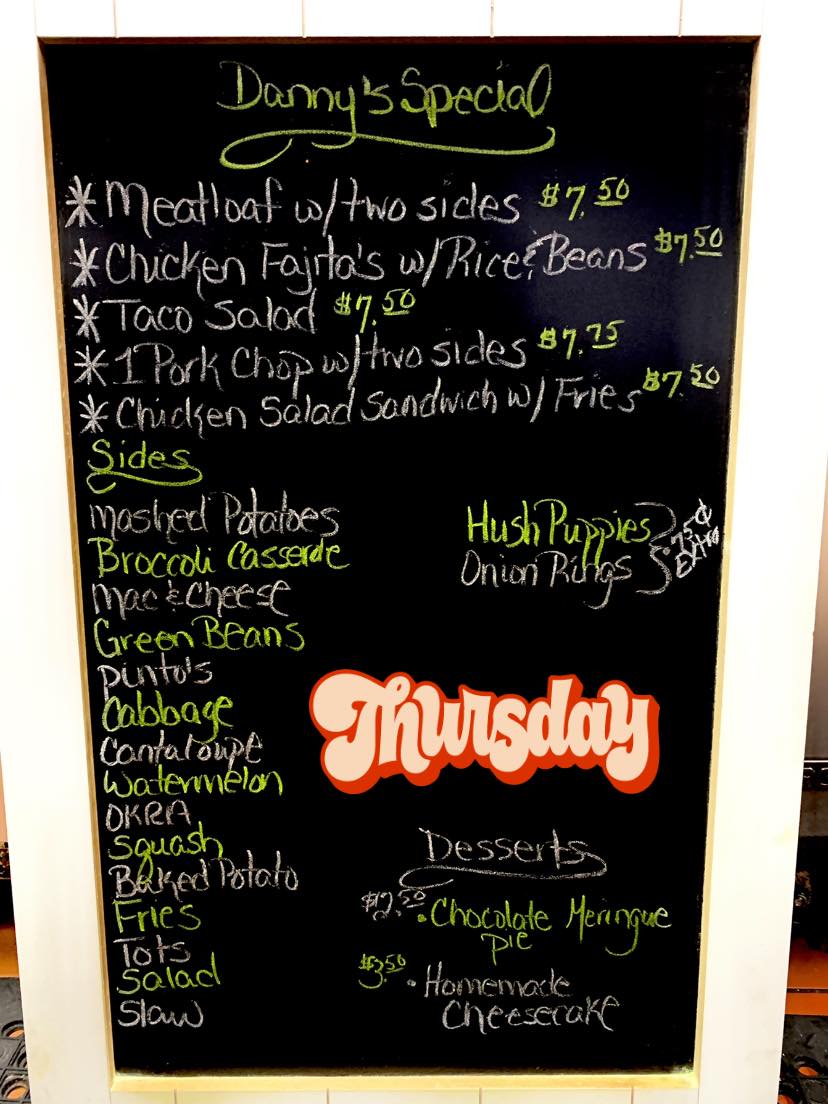 Danny's Special
* Meatloaf w/two sides $7.50
* Chicken Fajita's w/Rice & Beans $7.50
* Taco Salad $7.50
* 1 Pork Chop w/two sides $7.75
* Chicken Salad Sandwich w/ Fries $7.50
Sides
Mashed Potatoes
Broccoli Casserole
Mac & Cheese
Green Beans
Pinto's
Cabbage
Cantaloupe
Watermelon
OKRA
Squash
Baked Potato
Fries
Tots
Salad
Slaw
Hush Puppies
Onion Rings
.75¢
Extra
Thursday
Desserts
$2.50 • Chocolate Meringue
Pie
$3.50 • Homemade
Cheesecake